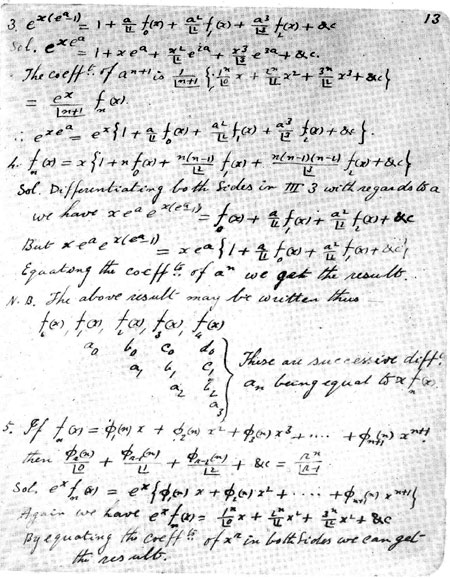 13
3. e^{x(e^a-1)} = 1 + a/|1 f_0(x) + a^2/|2 f_1(x) + a^3/|3 f_2(x) + &c
Sol. e^{xe^a} = 1 + xe^a + x^2/|2 e^{2a} + x^3/|3 e^{3a} + &c.
The coeff^t. of a^{n+1} is 1/|n+1 {1^n/|0 x + 2^n/|1 x^2 + 3^n/|2 x^3 + &c}
= e^x/|n+1 f_n(x).
∴ e^{xe^a} = e^x {1 + a/|1 f_0(x) + a^2/|2 f_1(x) + a^3/|3 f_2(x) + &c}.
4. f_n(x) = x {1 + n f_0(x) + n(n-1)/|2 f_1(x) + n(n-1)(n-2)/|3 f_2(x) + &c}
Sol. Differentiating both sides in III 3 with regards to a
we have x e^a e^{x(e^a-1)} = f_0(x) + a/|1 f_1(x) + a^2/|2 f_2(x) + &c
But x e^a e^{x(e^a-1)} = x e^a {1 + a/|1 f_0(x) + a^2/|2 f_1(x) + &c}
Equating the coeff^{ts}. of a^n we get the result.
N.B. The above result may be written thus —
f_0(x), f_1(x), f_2(x), f_3(x), f_4(x)
a_0 b_0 c_0 d_0
a_1 b_1 c_1
a_2 b_2
a_3
These are successive diff^{ce}.
a_n being equal to x f_n(x).
5. If f_n(x) = φ_1(n) x + φ_2(n) x^2 + φ_3(n) x^3 + .... + φ_{n+1}(n) x^{n+1}
then φ_r(n)/|0 + φ_{r-1}(n)/|1 + φ_{r-2}(n)/|2 + &c = r^n/|r-1
Sol. e^x f_n(x) = e^x {φ_1(n) x + φ_2(n) x^2 + ..... + φ_{n+1}(n) x^{n+1}}
Again we have e^x f_n(x) = 1^n/|0 x + 2^n/|1 x^2 + 3^n/|2 x^3 + &c
By equating the coeff^{ts}. of x^r in both sides we can get
the result.